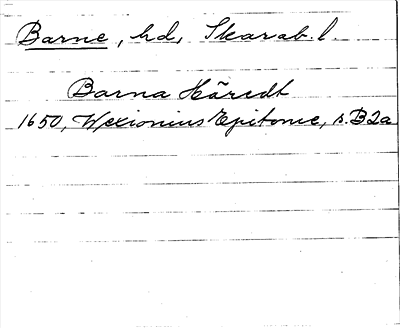 Barne, hd, Skarab. l.
Barna Häredt
1650, Wexionius Epitome, s. B2a